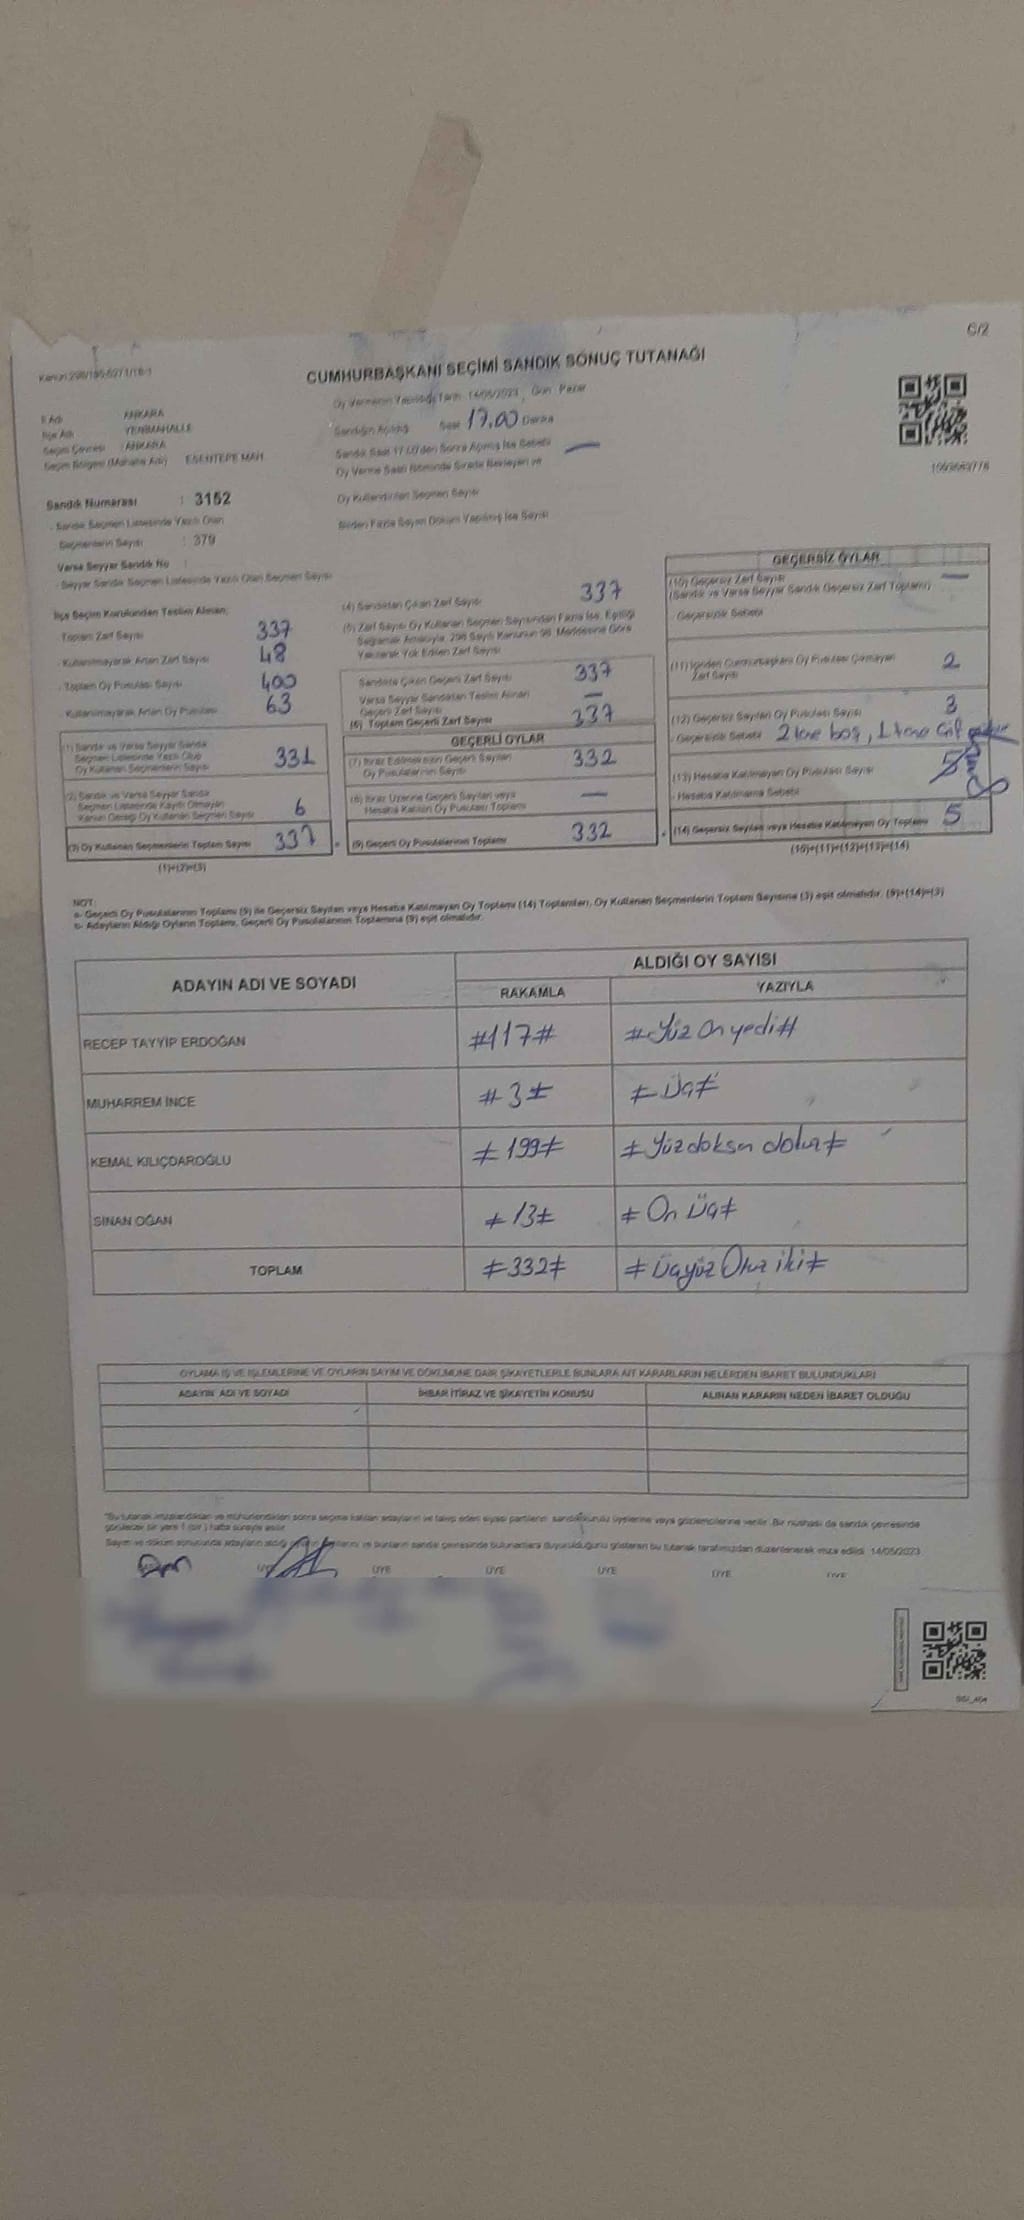 C/2
CUMHURBAŞKANI SEÇİMİ SANDIK SONUÇ TUTANAĞI
Oy Vermenin Yapıldığı Tarih 14/05/2023, Gün : Pazar
İl Adı ANKARA
İlçe Adı YENİMAHALLE
Seçim Çevresi : ANKARA
Seçim Bölgesi (Mahalle Adı) ESENTEPE MAH.
Sandığın Açıldığı Saat 17.00 Dakika
Sandık Saat 17.00'den Sonra Açılmış İse Sebebi —
Oy Verme Saati Bitiminde Sırada Bekleyen ve
Oy Kullandırılan Seçmen Sayısı
Birden Fazla Sayım Döküm Yapılmış İse Sayısı
Sandık Numarası : 3152
- Sandık Seçmen Listesinde Yazılı Olan
Seçmenlerin Sayısı : 379
Varsa Seyyar Sandık No :
- Seyyar Sandık Seçmen Listesinde Yazılı Olan Seçmen Sayısı
İlçe Seçim Kurulundan Teslim Alınan;
Toplam Zarf Sayısı 337
- Kullanılmayarak Artan Zarf Sayısı 48
- Toplam Oy Pusulası Sayısı 400
- Kullanılmayarak Artan Oy Pusulası 63
(1) Sandık ve Varsa Seyyar Sandık
Seçmen Listesinde Yazılı Olup
Oy Kullanan Seçmenlerin Sayısı 331
(2) Sandık ve Varsa Seyyar Sandık
Seçmen Listesinde Kayıtlı Olmayan
Kanun Gereği Oy Kullanan Seçmen Sayısı 6
(3) Oy Kullanan Seçmenlerin Toplam Sayısı 337
(1)+(2)=(3)
(4) Sandıktan Çıkan Zarf Sayısı 337
(5) Zarf Sayısı Oy Kullanan Seçmen Sayısından Fazla İse, Eşitliği
Sağlamak Amacıyla, 298 Sayılı Kanunun 98. Maddesine Göre
Yakılarak Yok Edilen Zarf Sayısı
Sandıkta Çıkan Geçerli Zarf Sayısı 337
Varsa Seyyar Sandıktan Teslim Alınan
Geçerli Zarf Sayısı —
(6) Toplam Geçerli Zarf Sayısı 337
GEÇERLİ OYLAR
(7) İtiraz Edilmeksizin Geçerli Sayılan
Oy Pusulalarının Sayısı 332
(8) İtiraz Üzerine Geçerli Sayılan veya
Hesaba Katılan Oy Pusulası Toplamı —
(9) Geçerli Oy Pusulalarının Toplamı 332
GEÇERSİZ OYLAR
(10) Geçersiz Zarf Sayısı —
(Sandık ve Varsa Seyyar Sandık Geçersiz Zarf Toplamı)
- Geçersizlik Sebebi
(11) İçinden Cumhurbaşkanı Oy Pusulası Çıkmayan
Zarf Sayısı 2
(12) Geçersiz Sayılan Oy Pusulası Sayısı 3
- Geçersizlik Sebebi 2 tane boş, 1 tane çift
(13) Hesaba Katılmayan Oy Pusulası Sayısı
- Hesaba Katılmama Sebebi
(14) Geçersiz Sayılan veya Hesaba Katılmayan Oy Toplamı 5
(10)+(11)+(12)+(13)=(14)
NOT:
a- Geçerli Oy Pusulalarının Toplamı (9) ile Geçersiz Sayılan veya Hesaba Katılmayan Oy Toplamı (14) Toplamları, Oy Kullanan Seçmenlerin Toplam Sayısına (3) eşit olmalıdır. (9)+(14)=(3)
b- Adayların Aldığı Oyların Toplamı, Geçerli Oy Pusulalarının Toplamına (9) eşit olmalıdır.
ADAYIN ADI VE SOYADI ALDIĞI OY SAYISI
RAKAMLA YAZIYLA
RECEP TAYYİP ERDOĞAN #117# #Yüz On yedi#
MUHARREM İNCE #3# #Üç#
KEMAL KILIÇDAROĞLU #199# #Yüzdoksan dokuz#
SİNAN OĞAN #13# #On Üç#
TOPLAM #332# #Üçyüz Otuz iki#
OYLAMA İŞ VE İŞLEMLERİNE VE OYLARIN SAYIM VE DÖKÜMÜNE DAİR ŞİKAYETLERLE BUNLARA AİT KARARLARIN NELERDEN İBARET BULUNDUKLARI
ADAYIN ADI VE SOYADI İHBAR İTİRAZ VE ŞİKAYETİN KONUSU ALINAN KARARIN NEDEN İBARET OLDUĞU
"Bu tutanak imzalandıktan ve mühürlendikten sonra seçime katılan adayların ve talep eden siyasi partilerin sandık kurulu üyelerine veya gözlemcilerine verilir. Bir nüshası da sandık çevresinde
görülecek bir yere 1 (bir) hafta süreyle asılır.
Sayım ve döküm sonucunda adayların aldığı oyların ve bunların sandık çevresinde bulunanlara duyurulduğunu gösteren bu tutanak tarafımızdan düzenlenerek imza edildi. 14/05/2023
ÜYE ÜYE ÜYE ÜYE ÜYE ÜYE